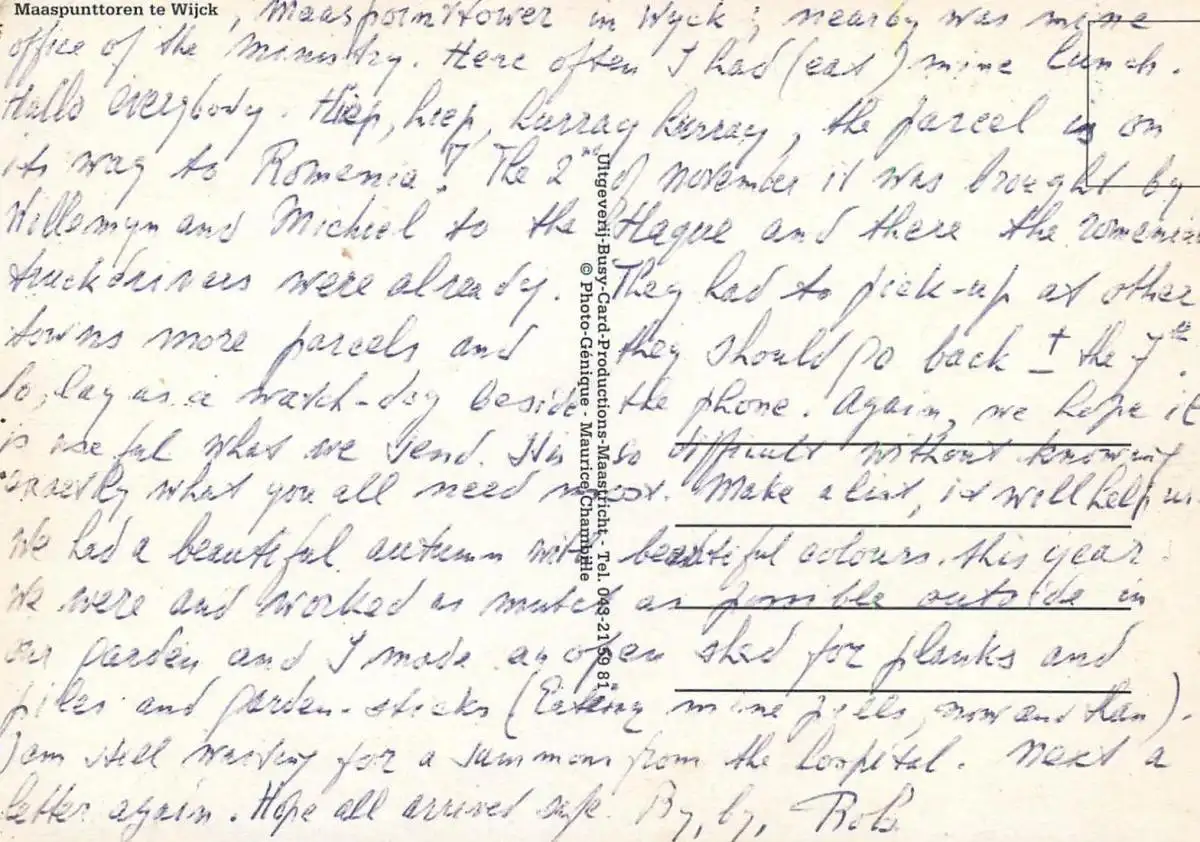 Maaspunttoren te Wijck
, Maaspointtower in Wyck ; nearby was mine
office of the ministry. Here often I had (eat) mine lunch.
Hallo everybody. Hiep, hiep, hurray hurray, the parcel is on
its way to Romenia! The 2nd of november it was brought by
Willemyn and Michiel to the Hague and there the romenian
truckdrivers were already. They had to pick-up at other
towns more parcels and they should go back ± the 7th.
So, lay as a watch-dog beside the phone. Again, we hope it
is useful what we send. It is so difficult without knowing
exactly what you all need most. Make a list, it will help us.
We had a beautiful autumn with beautiful colours this year.
We were and worked as much as possible outside in
our garden and I made an open shed for planks and
piles and garden-sticks (Eating mine pills, now and than).
I am still waiting for a summons from the hospital. Next a
letter again. Hope all arrives safe. By, by, Rob.
Uitgeverij-Busy-Card-Productions-Maastricht - Tel. 043-21 59 81
© Photo-Génique - Maurice Chambille